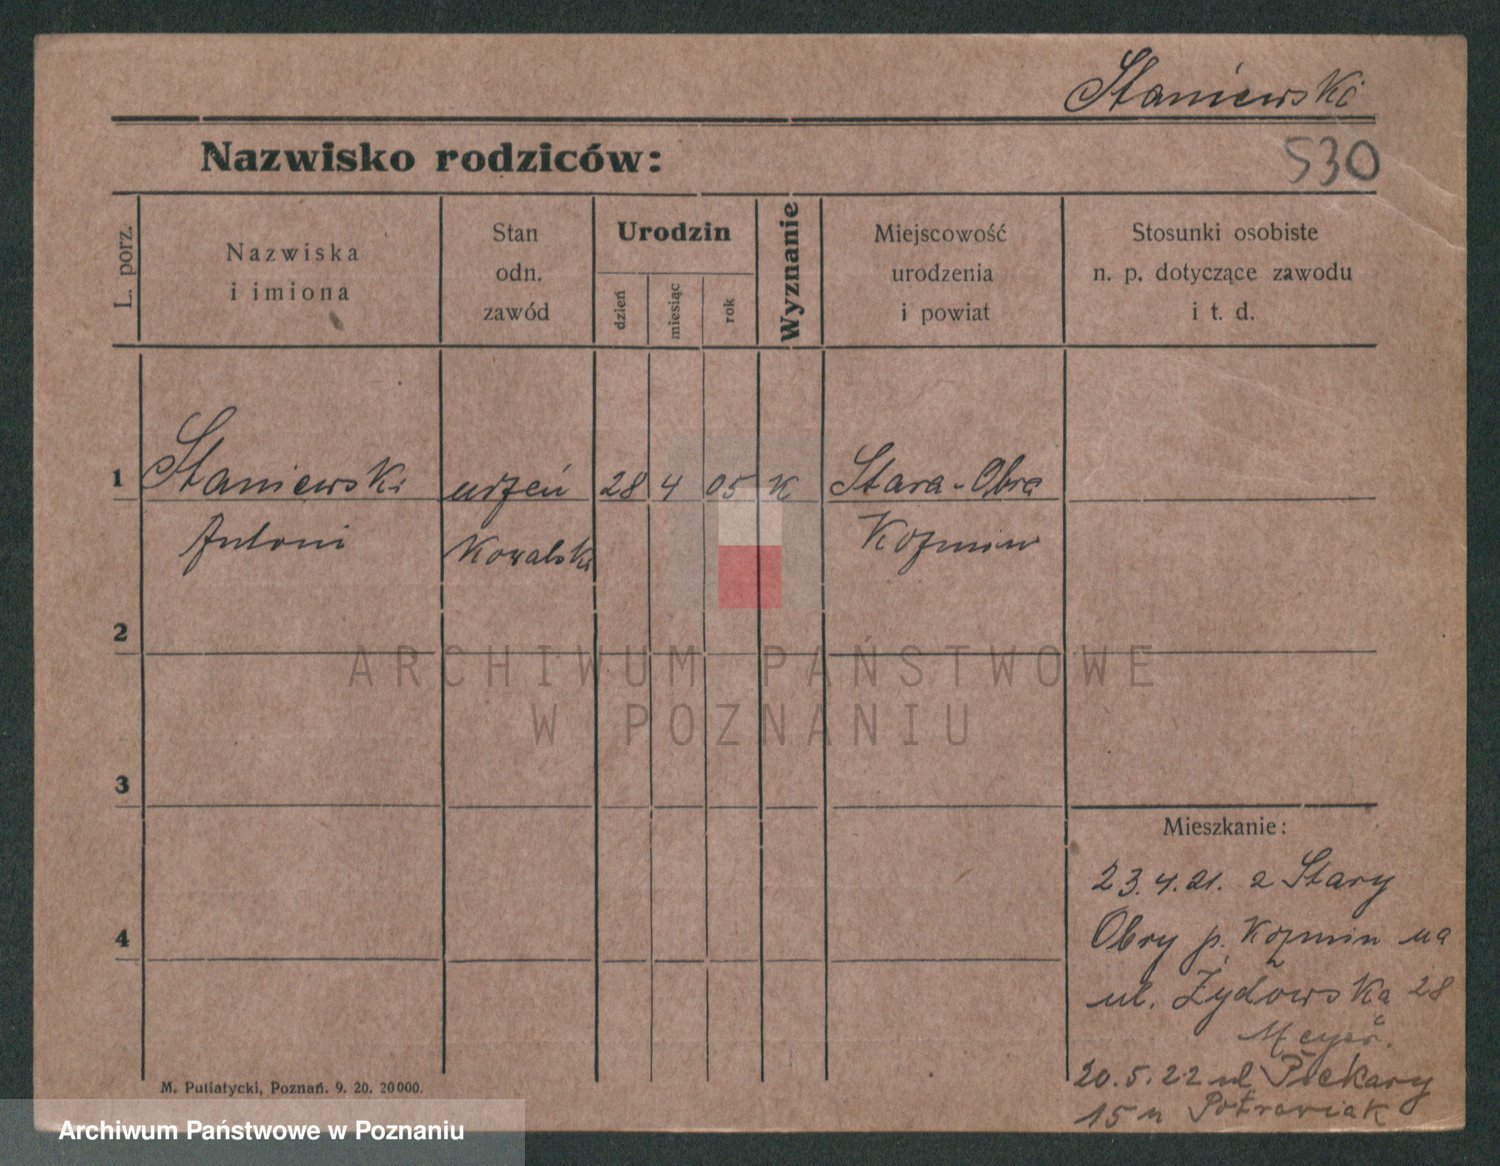 Staniewski
Nazwisko rodziców:
530
L. porz.
Nazwiska
i imiona
Stan
odn.
zawód
Urodzin
dzień
miesiąc
rok
Wyznanie
Miejscowość
urodzenia
i powiat
Stosunki osobiste
n. p. dotyczące zawodu
i t. d.
1 Staniewski uczeń 28 4 05 K Stara-Obra
Antoni Kowalski Kozmin
2
ARCHIWUM PAŃSTWOWE
W POZNANIU
3
Mieszkanie:
23.4.21. z Stary
4
Obry p. Kozmin na
ul. Żydowska 28
Meyer.
20.5.22 ul Piekary
15 u Potrawiak
M. Putiatycki, Poznań. 9. 20. 20000.
Archiwum Państwowe w Poznaniu